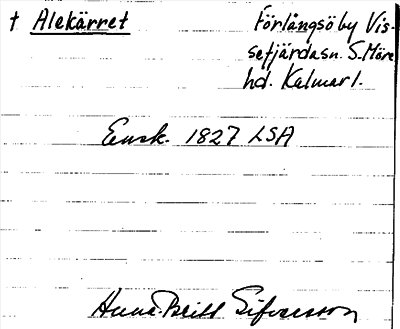 † Alekärret Förlångsö by Vis-
sefjärda sn. S. Möre
hd. Kalmar l.
Ensk. 1827 LSA
Anna-Britt Sifvarsson